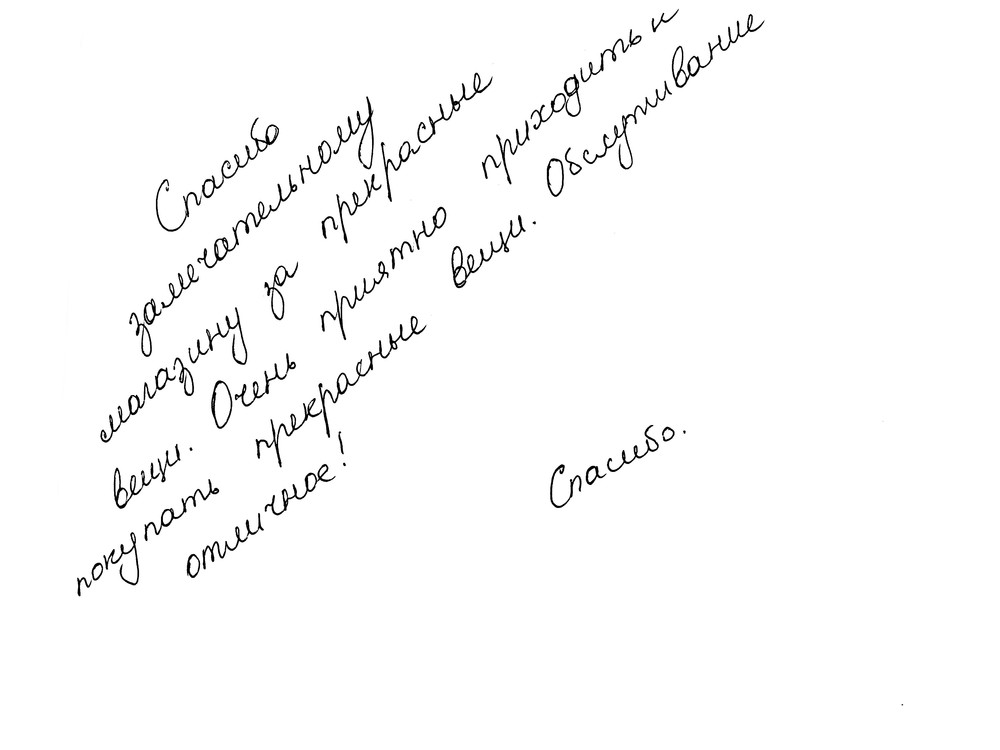 Спасибо
замечательному
магазину за прекрасные
вещи. Очень приятно приходить и
покупать прекрасные вещи. Обслуживание
отличное!
Спасибо.